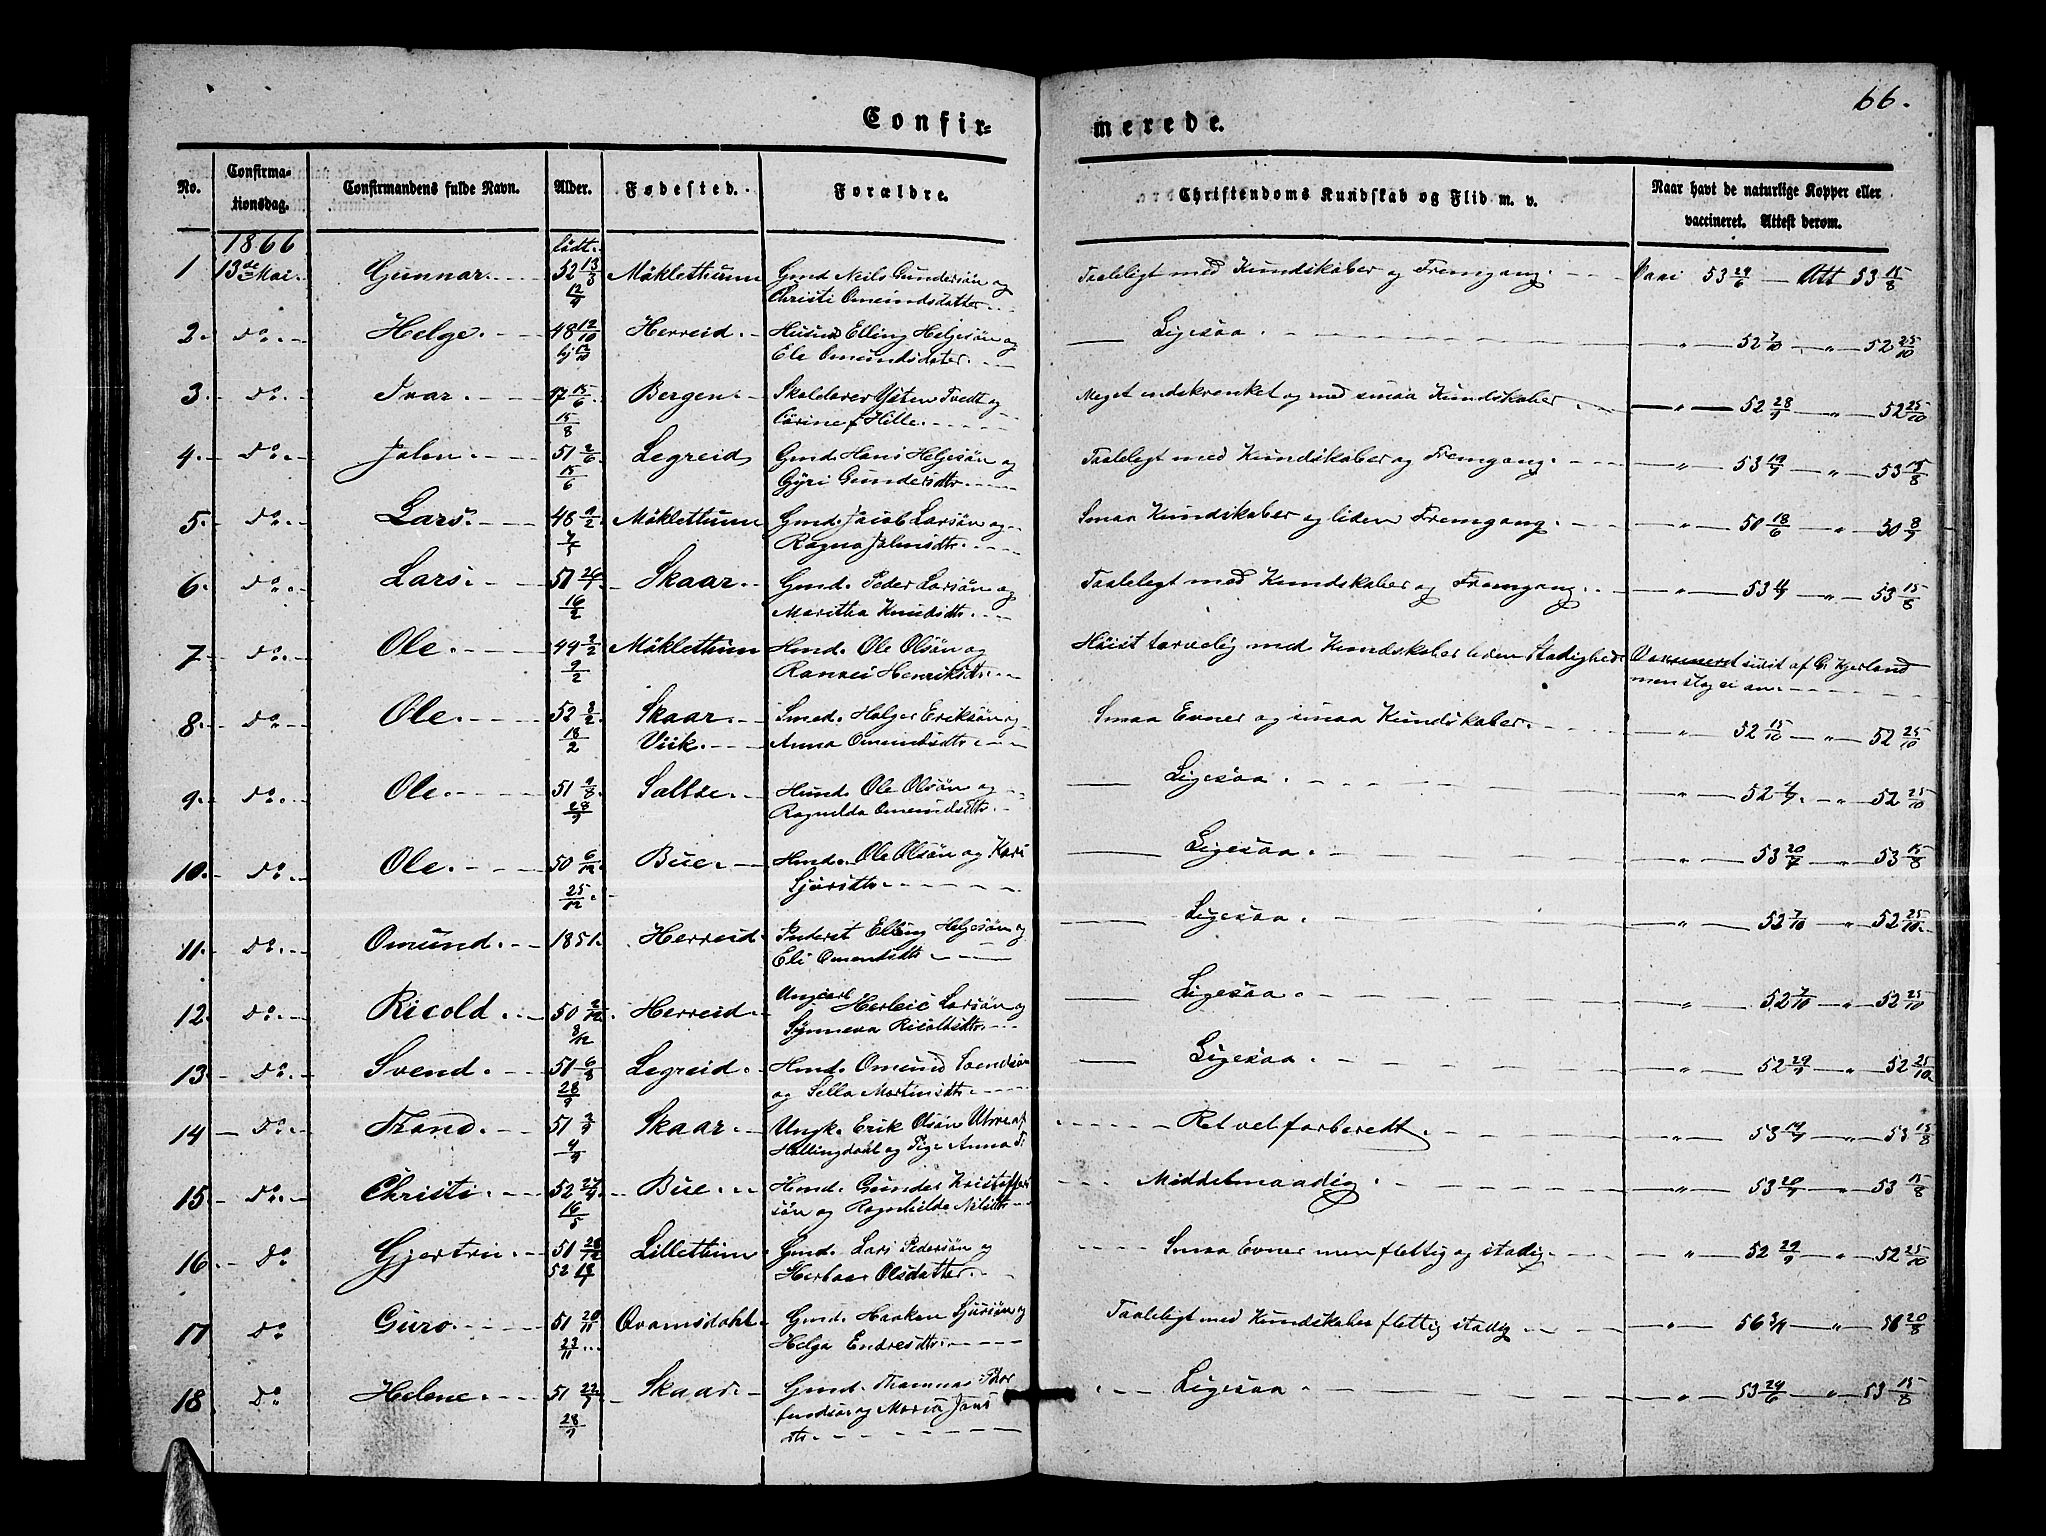 66.
Confir-
merede.
No.
Confirma-
tionsdag.
Confirmandens fulde Navn.
Alder.
Fødested.
Forældre.
Christendoms Kundskab og Flid m. v.
Naar havt de naturlige Kopper eller
vaccineret. Attest derom.
1866
födt.
1 13de Mai. Gunnar. 52 13/3 Måklethum Gmd Neils Gundersön og Taaleligt med Kundskaber og Fremgang. Vaxi 53 29/6 Att 53 15/8
12/9 Christi Omundsdatter.
2. Do. Helge. 48 12/10 Herreid. Elling Helgesön og Ligesaa. " 52 7/10 " 52 25/10
Eli Omundsdater.
3. Do. Ivar. 47 15/6 Bergen. Ysten Tvedt og Meget indskrenket og med smaa Kundskaber " 52 28/9 " 52 25/10
15/8 Hille.
4. Do. John. 51 2/6 Legreid Gmd. Hans Helgesön og Taaleligt med Kundskaber og Fremgang. " 53 19/7 " 53 15/8
15/6 Gyri Gundersdtr.
5. Do. Lars. 48 9/2 Måklethum Gmd. Jacob Larsön og Smaa Kundskaber og liden Fremgang. " 50 18/6 " 50 8/9
Ragna Johnsdtr.
6. Do. Lars. 51 26/1 Skaar. Gmd. Peder Larsön og Taaleligt med Kundskaber og Fremgang. " 53 " 53 15/8
16/2 Maritha Knudsdtr.
7. Do. Ole. 49 2/2 Måklethum Hmd. Ole Olsön og Höist tarvelig med Kundskaber liden Stadighed Vaxineret af G. Kjerland
9/2 Ranvei Henriksdtr. men slog ei an.
8. Do. Ole. 52 3/2 Skaar. Smed. Holger Eriksön og Smaa Evner og smaa Kundskaber. " 52 15/10 " 52 25/10
18/2 Viik. Anna Omundsdtr.
9. Do. Ole. 51 9/8 Sæbbe. Hmd. Ole Olsön og Ligesaa. " 52 " 52 25/10
28/9 Ragnilda Omundsdtr.
10. Do. Ole. 50 6/12 Bue. Hmd. Ole Olsön og Kari Ligesaa. " 53 20/7 " 53 15/8
25/12 Sjursdtr.
11. Do. Omund. 1851. Herreid. Inderst Elling Helgesön og Ligesaa. " 52 7/10 " 52 25/10
Eli Omundsdtr.
12. Do. Ricold. 50 2/12 Herreid. Ungcarl Herleic Larsön og Ligesaa. " 52 7/10 " 52 25/10
8/12 Synneva Ricoltsdtr.
13. Do. Svend. 51 6/8 Legreid. Hmd. Omund Svendsön Ligesaa. " 52 29/9 " 52 25/10
28/9 og Sella Martinsdtr.
14 Do. Trond. 51 Skaar. Ungk. Erik Olsön af Ret vel forberedt. " 53 19/7 " 53 15/8
Hallingdahl og Pige Anna
15. Do. Christi. 52 27/4 Bue. Hmd. Gunder Kristoffer Middelmaadig. " 53 20/7 " 53 15/8
16/5 sön og Ragnhilde Nilsdtr.
16. Do Gjertrú. 51 28/12 Lillethum Gmd. Lars Pedersön og Smaa Evner men flettig og stadig. " 52 29/9 " 52 25/10
52 Herbaar Olsdatter.
17 Do Guro. 51 20/11 Qvamsdahl. Gmd. Haaken Sjursön og Taaleligt med Kundskaber flettig stadig " 56 " 56 20/8
23/11 Helga Endresdtr.
18. Do Helene. 51 22/7 Skaar. Gmd. Thammas Thor Ligesaa. " 53 29/6 " 53 15/8
28/9 og Maria Jans
dtr.